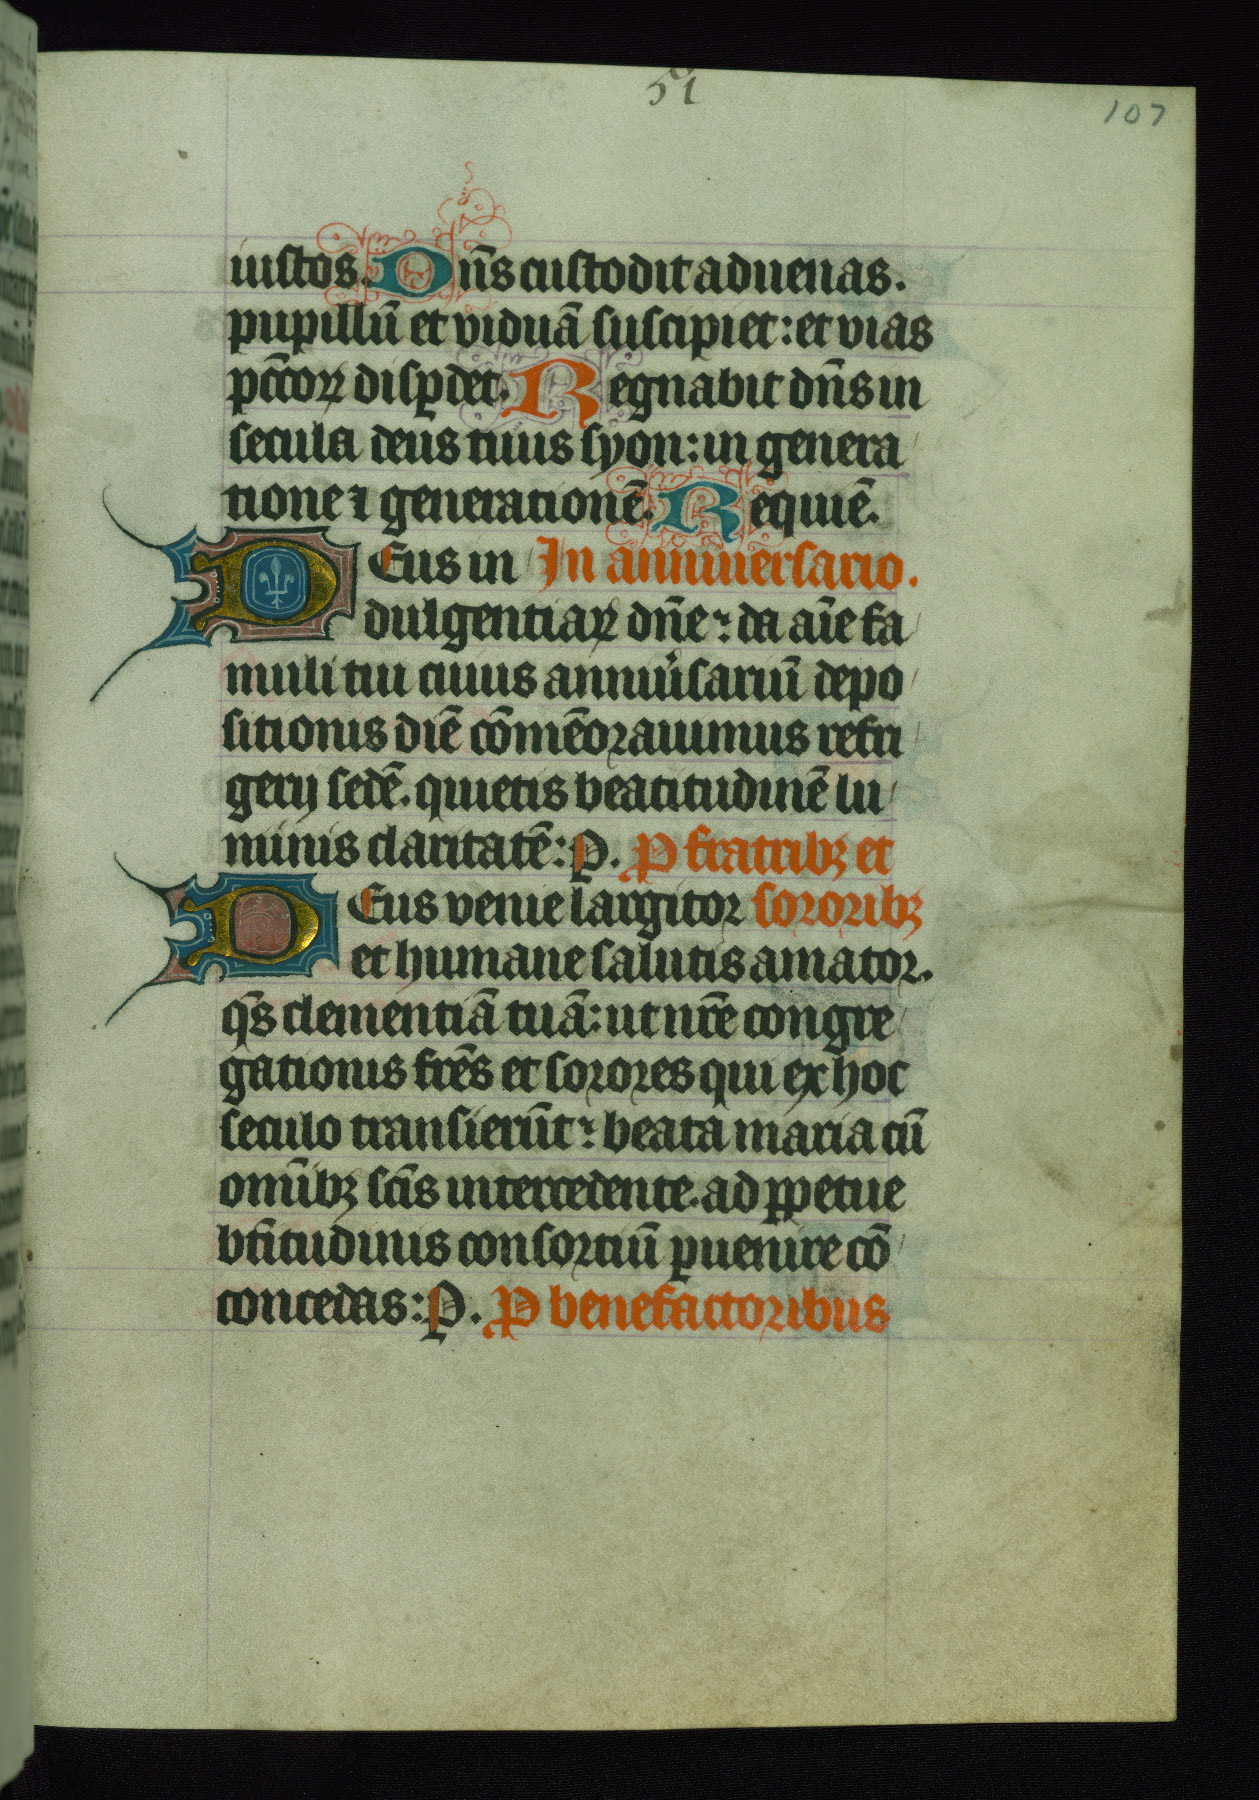 51
107
iustos. Dn̄s custodit aduenas.
pupillū et viduā suscipiet: et vias
pctōꝝ disꝑdet. Regnabit dn̄s in
secula deus tuus syon: in genera
tione ⁊ generationē. Requiē.
Deus in In anniuersario.
dulgentiaꝝ dn̄e: da aīe fa
muli tui cuius anniu̾sariū depo
sitionis diē cōmēorauimus refri
gerij sedē. quietis beatitudinē lu
minis claritatē: P. P fratribꝫ et
Deus venie largitor sororibꝫ
et humane salutis amator.
qs̄ clementiā tuā: ut nr̄e congre
gationis fr̄es et sorores qui ex hoc
seculo transierūt: beata maria cū
omībꝫ scīs intercedente. ad ꝑpetue
bt̄itudinis consortiū ꝑuenire cō
concedas: P. P benefactoribus